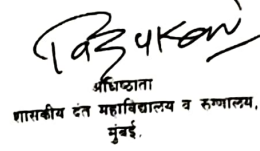 अधिष्ठाता
शासकीय दंत महाविद्यालय व रुग्णालय,
मुंबई.